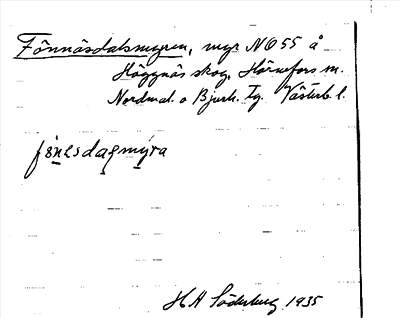 Fönnäsdalsmyren, myr NO55 å
Häggnäs skog, Hörnefors m.
Nordmal. o Bjurh. tg. Västerb. l.
fönesdaɽmýra
H A Söderberg 1935